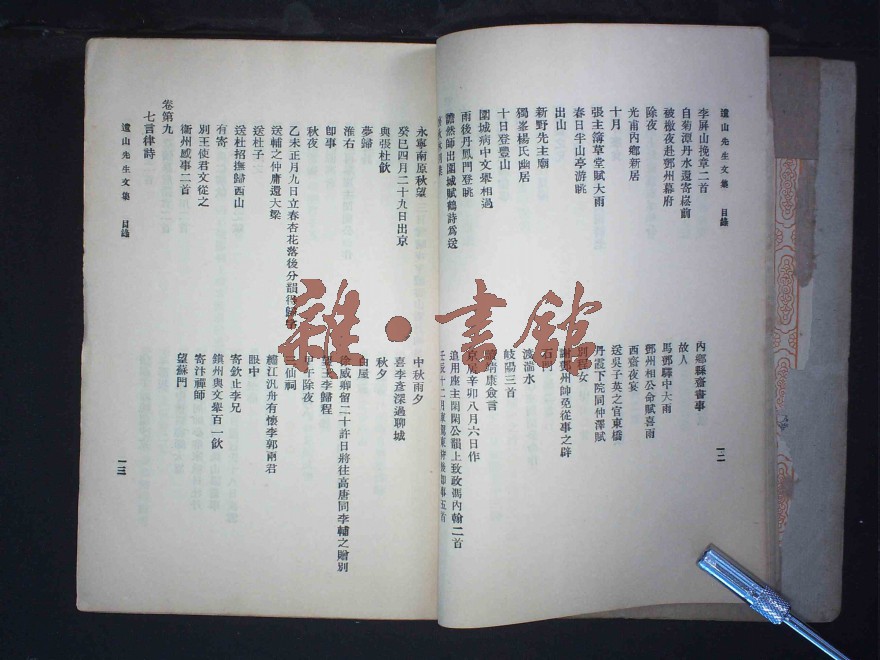 遺山先生文集 目錄
李屏山挽章二首
自菊潭丹水還寄崧前
被檄夜赴鄧州幕府
除夜
光甫內鄉新居
十月
張主簿草堂賦大雨
春日半山亭游眺
出山
新野先主廟
獨峯楊氏幽居
十日登豐山
圍城病中文舉相過
雨後丹鳳門登眺
瞻然師出圍城賦鶴詩爲送
內鄉縣齋書事
故人
馬鄧驛中大雨
鄧州相公命賦喜雨
西齋夜宴
送吳子英之官東橋
丹霞下院同仲澤賦
別程女
謝鄧州帥免從事之辟
岐陽三首
京居辛卯八月六日作
追用座主閑閑公韻上致政馮內翰二首
壬辰十二月車駕東狩後卽事五首
一二
永寧南原秋望
癸巳四月二十九日出京
與張杜飲
夢歸
淮右
卽事
秋夜
乙未正月九日立春杏花落後分韻得歸字
送輔之仲庸還大梁
送杜子
送杜招撫歸西山
有寄
別王使君丈從之
衞州感事二首
卷第九
七言律詩
中秋雨夕
喜李彥深過聊城
秋夕
白屋
徐威卿留二十許日將往高唐同李輔之贈別
甲午除夜
三仙祠
橫江汎舟有懷李郭兩君
眼中
寄欽止李兄
鎮州與文舉百一飲
寄汴禪師
望蘇門
遺山先生文集 目錄
一三
雜·書館